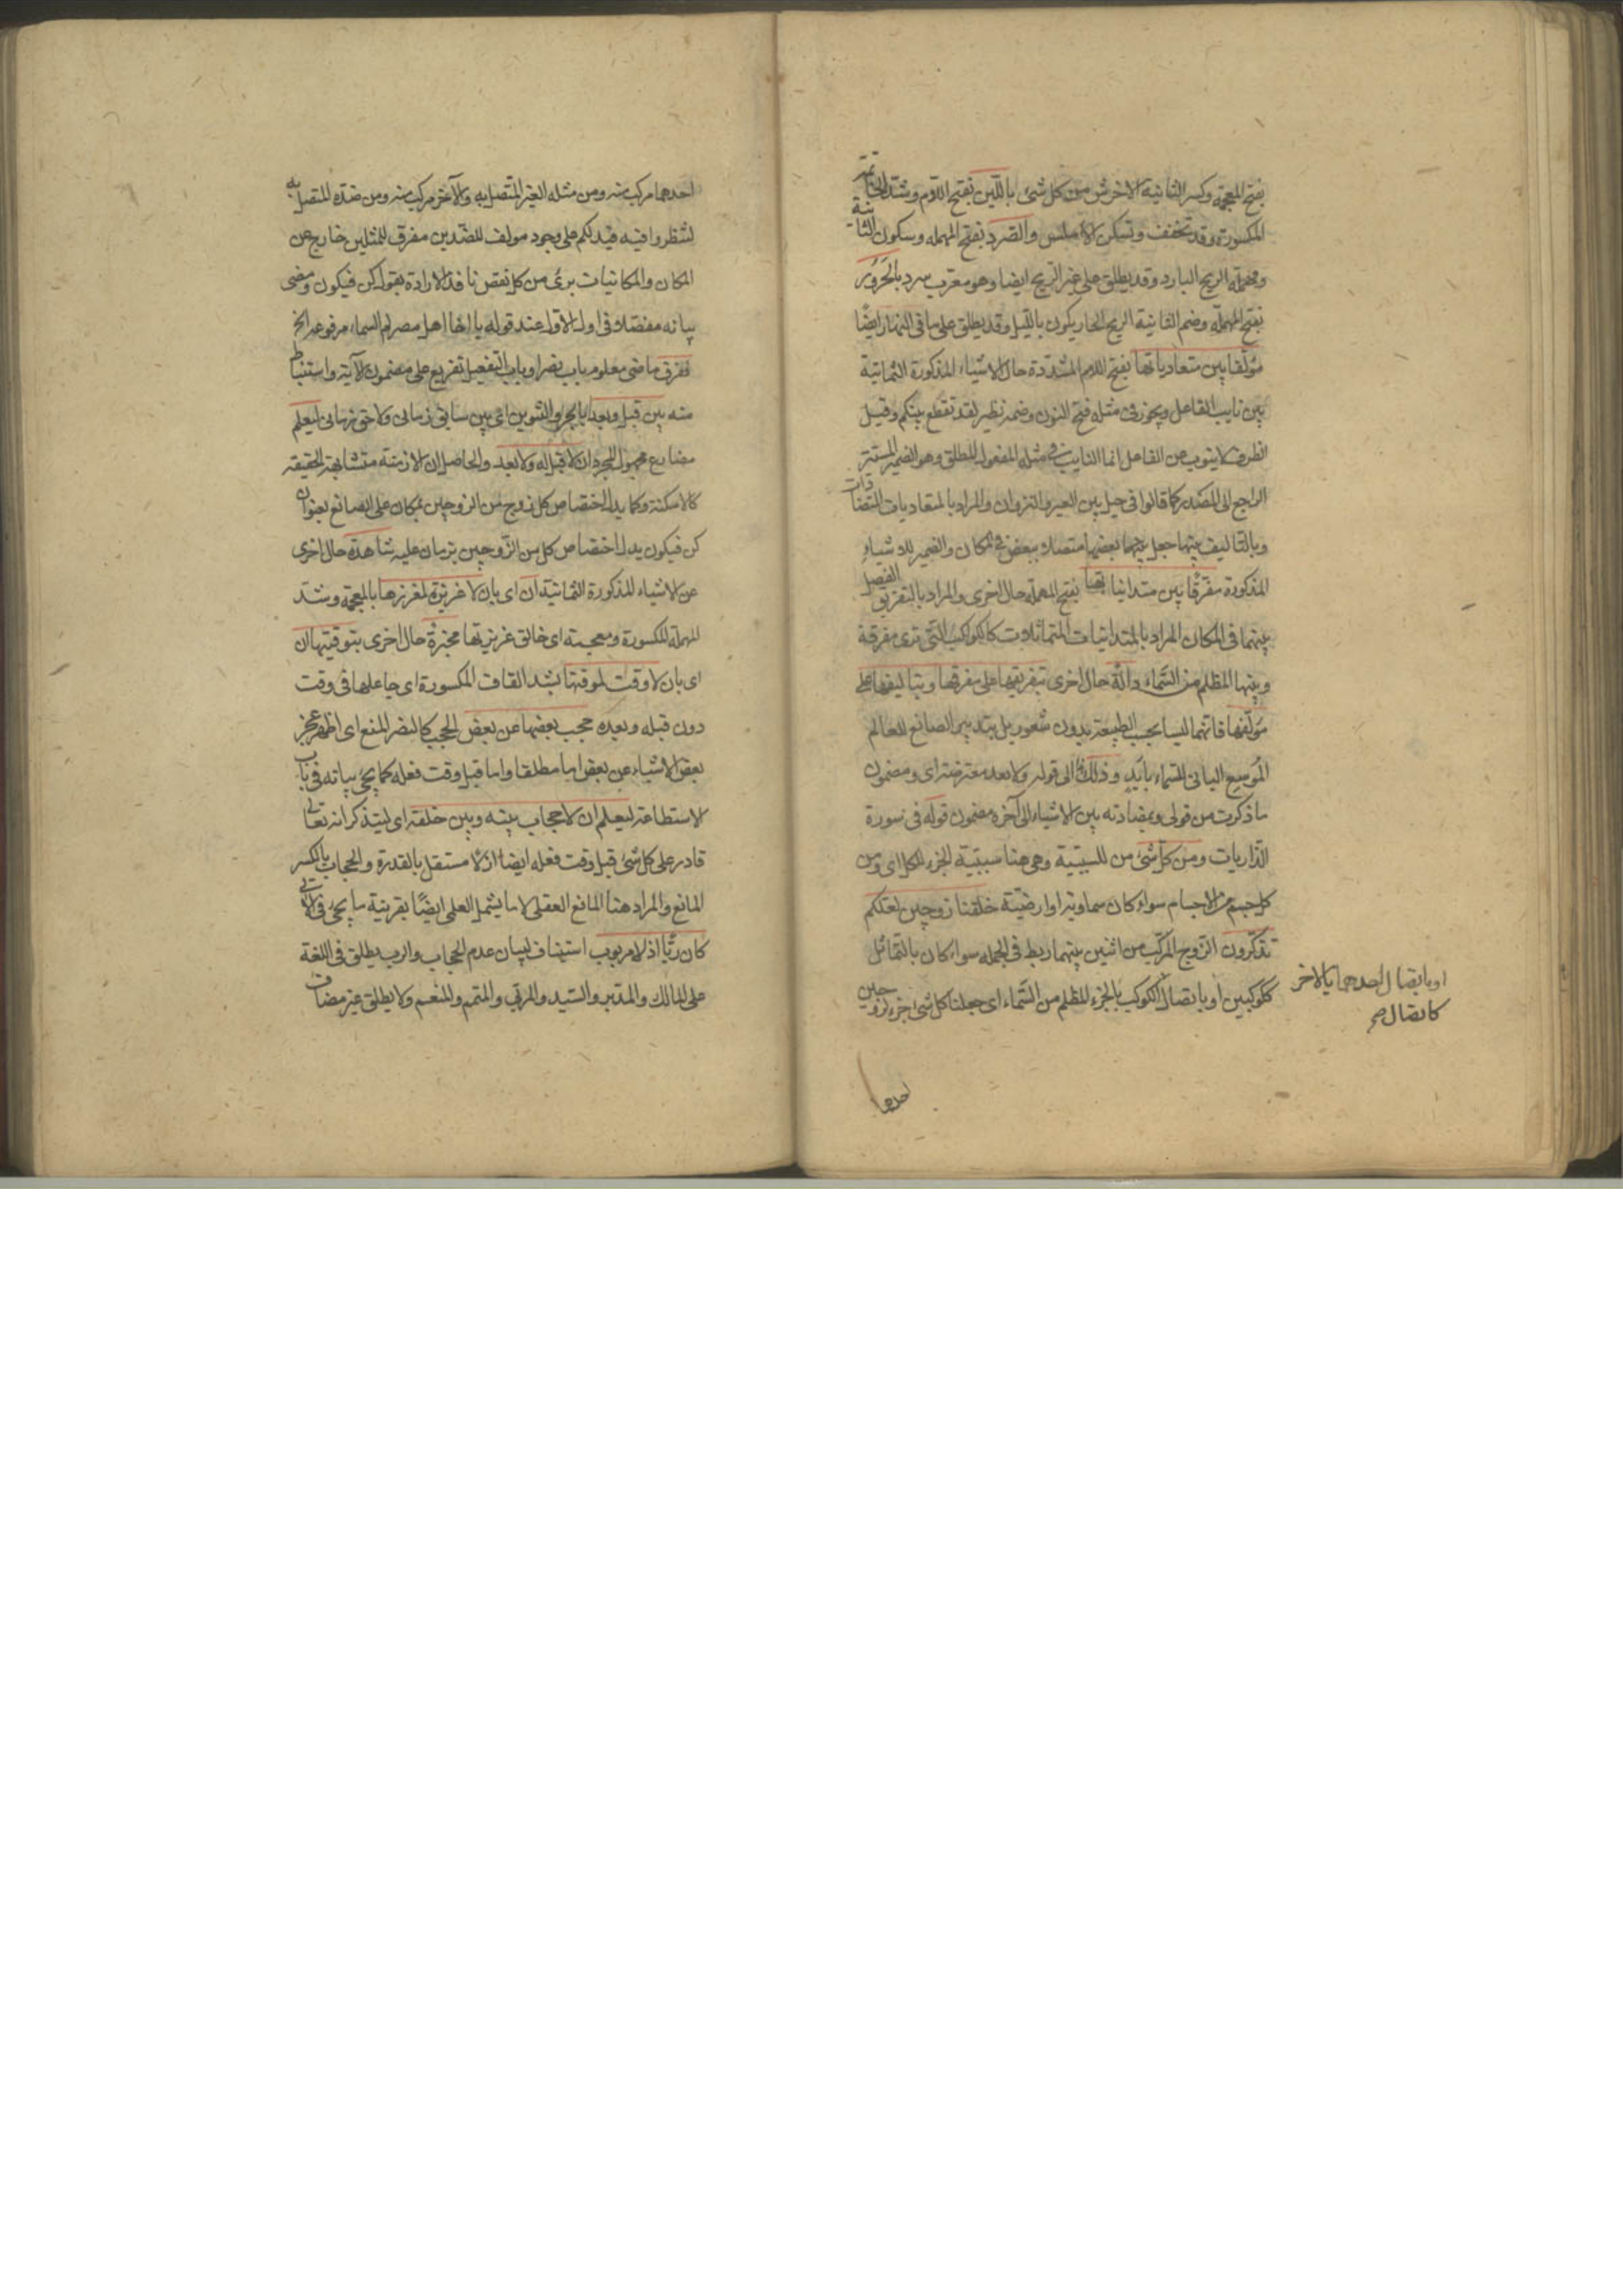 بفتح المعجمة وكسر الثانية الاخرش من كل شئ باللين بفتح اللام وشد الخاتمة
المكسورة وقد تخفف وتسكن الاملس والصرد بفتح المهملة وسكون الثانية
ومهملة الريح البارد وقد يطلق على غير الريح ايضا وهو معرب سرد بالحرور
بفتح المهملة وضم الثانية الريح الحار يكون بالليل وقد يطلق على ما فى النهار ايضًا
مؤلّفا بين متعادياتها بفتح اللام المشددة حال الاشياء المذكورة الثمانية
بين نايب الفاعل ويجوز فى مثله فتح النون وضمه نظير لقد تقطع بينكم وقيل
الظرف لا ينوب عن الفاعل انما النايب فى مثله المفعول المطلق وهو الضمير المستتر
الراجع الى المصدر كما قالوا فى حيل بين العير والنزوان والمراد بالمتعاديات المتضادات
وبالتاليف بينها جعل بعضها متصلا ببعض فى المكان والضمير للاشياء
المذكورة مفرّقًا بين متدانياتها بفتح المهملة حال اخرى والمراد بالتفريق الفصل
بينهما فى المكان المراد بالمتدانيات المتماثلات كالكواكب التى ترى مفرقة
وبينها المظلم من السّماء دالّة حال اخرى بتفريقها على مفرقها وبتاليفها على
مؤلّفها فانّهما ليسا بحسب الطبيعة بدون شعور بل بتدبير الصانع للعالم
المُوسِع البانى للسّماء بايدٍ وذلك الى قوله ولا بعد معترضة اى ومضمون
ما ذكرت من قولى وبمضادته بين الاشياء الى آخره مضمون قوله فى سورة
الذّاريات ومن كلّ شئ من للسببية وهى هنا سببية الجزء للكل اى ومن
كل جسم من الاجسام سواء كان سماوية او ارضيّة خلقنا زوجين لعلّكم
تذكّرون الزّوج المركّب من اثنين بينهما ربط فى الجمله سواء كان بالتماثل
ككوكبين او باتصال الكوكب بالجزء المظلم من السّماء اى جعلنا كل شئ جزء لزوجين
او باتصال احدهما بالاخر
كاتصال صح
احدهما
احدهما مركب منه ومن مثله الغير المتّصل به والآخر مركب منه ومن ضدّه المتصل به
لتنظروا فيه فيدلكم على وجود مولف للضّدين مفرق للمثلين خارج عن
المكان والمكانيات برئ من كل نقص نافذ الارادة بقول كن فيكون ومضى
بيانه مفصّلا فى اول الاوّل عند قوله يا اخا اهل مصر لم السماء مرفوعة الخ
ففرق ماضى معلوم باب نصر او باب التفعيل تفريع على مضمون الآية واستنباط
منه بين قبل وبعد بالجر والتنوين اى بين سابق زمانى ولاحق زمانى ليعلم
مضارع مجهول المجرد ان لا قبل له ولا بعد والحاصل ان الازمنة متشابهة الحقيقة
كالامكنة وكما يدل اختصاص كل زوج من الزوجين بمكان على الصانع بعنوان
كن فيكون يدل اختصاص كل من الزّوجين بزمان عليه شاهدة حال اخرى
عن الاشياء المذكورة الثمانية ان اى بان لا غريزة لمغرزها بالمعجمة وشد
المهملة المكسورة ومعجمة اى خالق غريزتها مخبرة حال اخرى بتوقيتها ان
اى بان لا وقت لموقتها بشد القاف المكسورة اى جاعلها فى وقت
دون قبله وبعده حجب بعضها عن بعض الحجب كالنصر المنع اى اظهر عجز
بعض الاشياء عن بعض اما مطلقا واما قبل وقت فعله كما يجئ بيانه فى باب
الاستطاعة ليعلم ان لا حجاب بينه وبين خلقه اى ليتذكر انه تعالى
قادر على كل شئ قبل وقت فعله ايضا ازلا مستقل بالقدرة والحجاب بالكسر
المانع والمراد هنا المانع العقلى لا ما يشمل العلمى ايضًا بقرينة ما يجئ فى الآتى
كان ربّا اذ لا مربوب استيناف لبيان عدم الحجاب والرب يطلق فى اللغة
على المالك والمدبر والسّيد والمربّى والمتمم والمنعم ولا يطلق غير مضاف